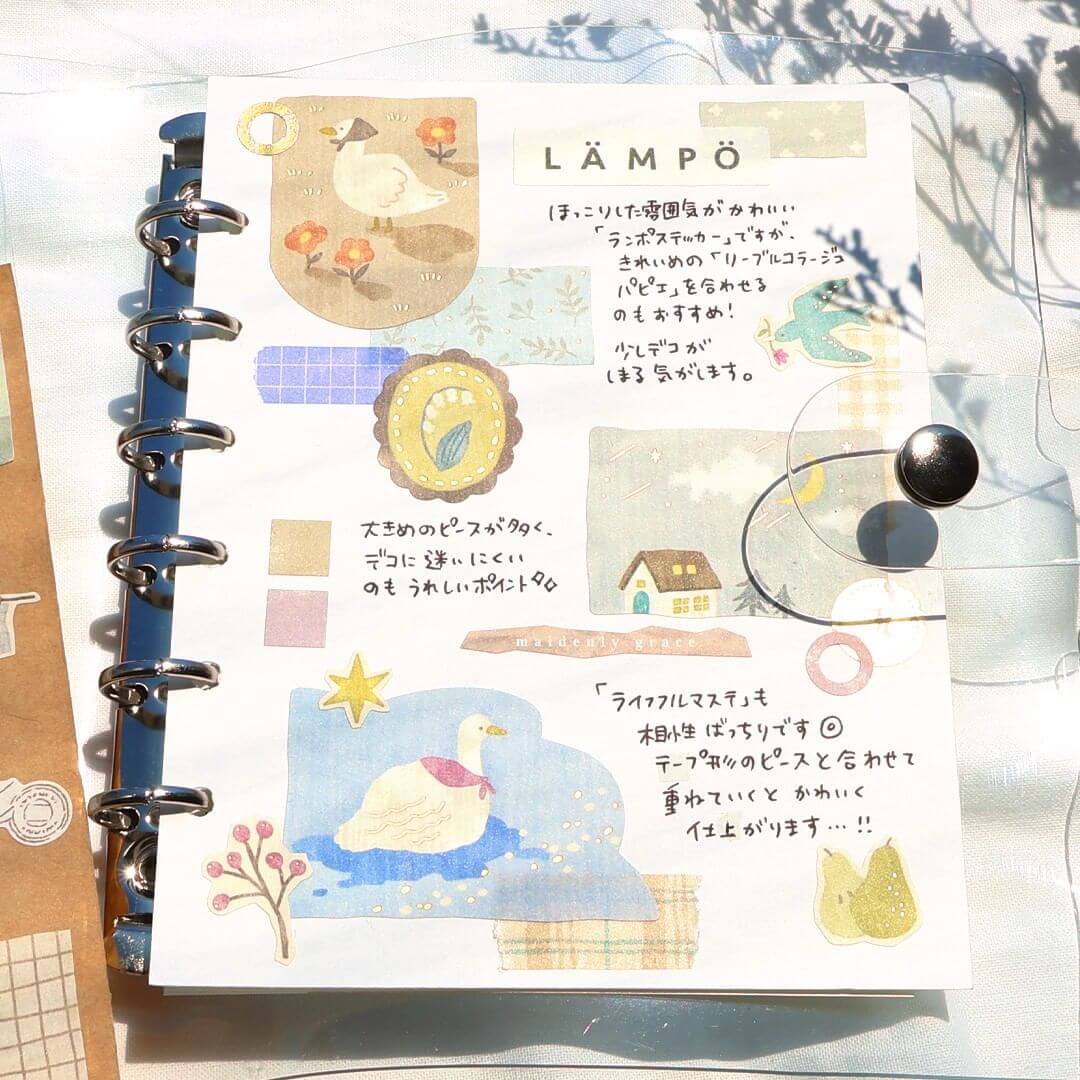 LÄMPÖ
ほっこりした雰囲気がかわいい
「ランポステッカー」ですが、
きれいめの「リーブルコラージュ
パピエ」を合わせる
のもおすすめ！
少しデコが
しまる気がします。
大きめのピースが多く、
デコに迷いにくい
のもうれしいポイント
maidenly grace
「ライフフルマステ」も
相性ばっちりです◎
テープ形のピースと合わせて
重ねていくとかわいく
仕上がります…!!